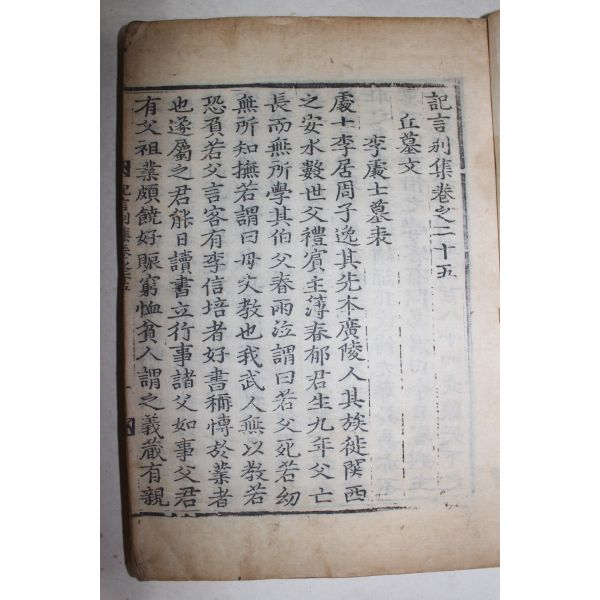 記言別集卷之二十五
丘墓文
李處士墓表
處士李居周子逸其先本廣陵人其族徙関西
之安水數世父禮賓主薄春郁君生九年父亡
長而無所學其伯父春雨泣謂曰若父死若幼
無所知撫若謂曰毋父教也我武人無以教若
恐負若父言客有李信培者好書稱慱於業者
也遂属之君能日讀書立行事諸父如事父君
有父祖業頗饒好賑窮恤貧人謂之義蔵有親